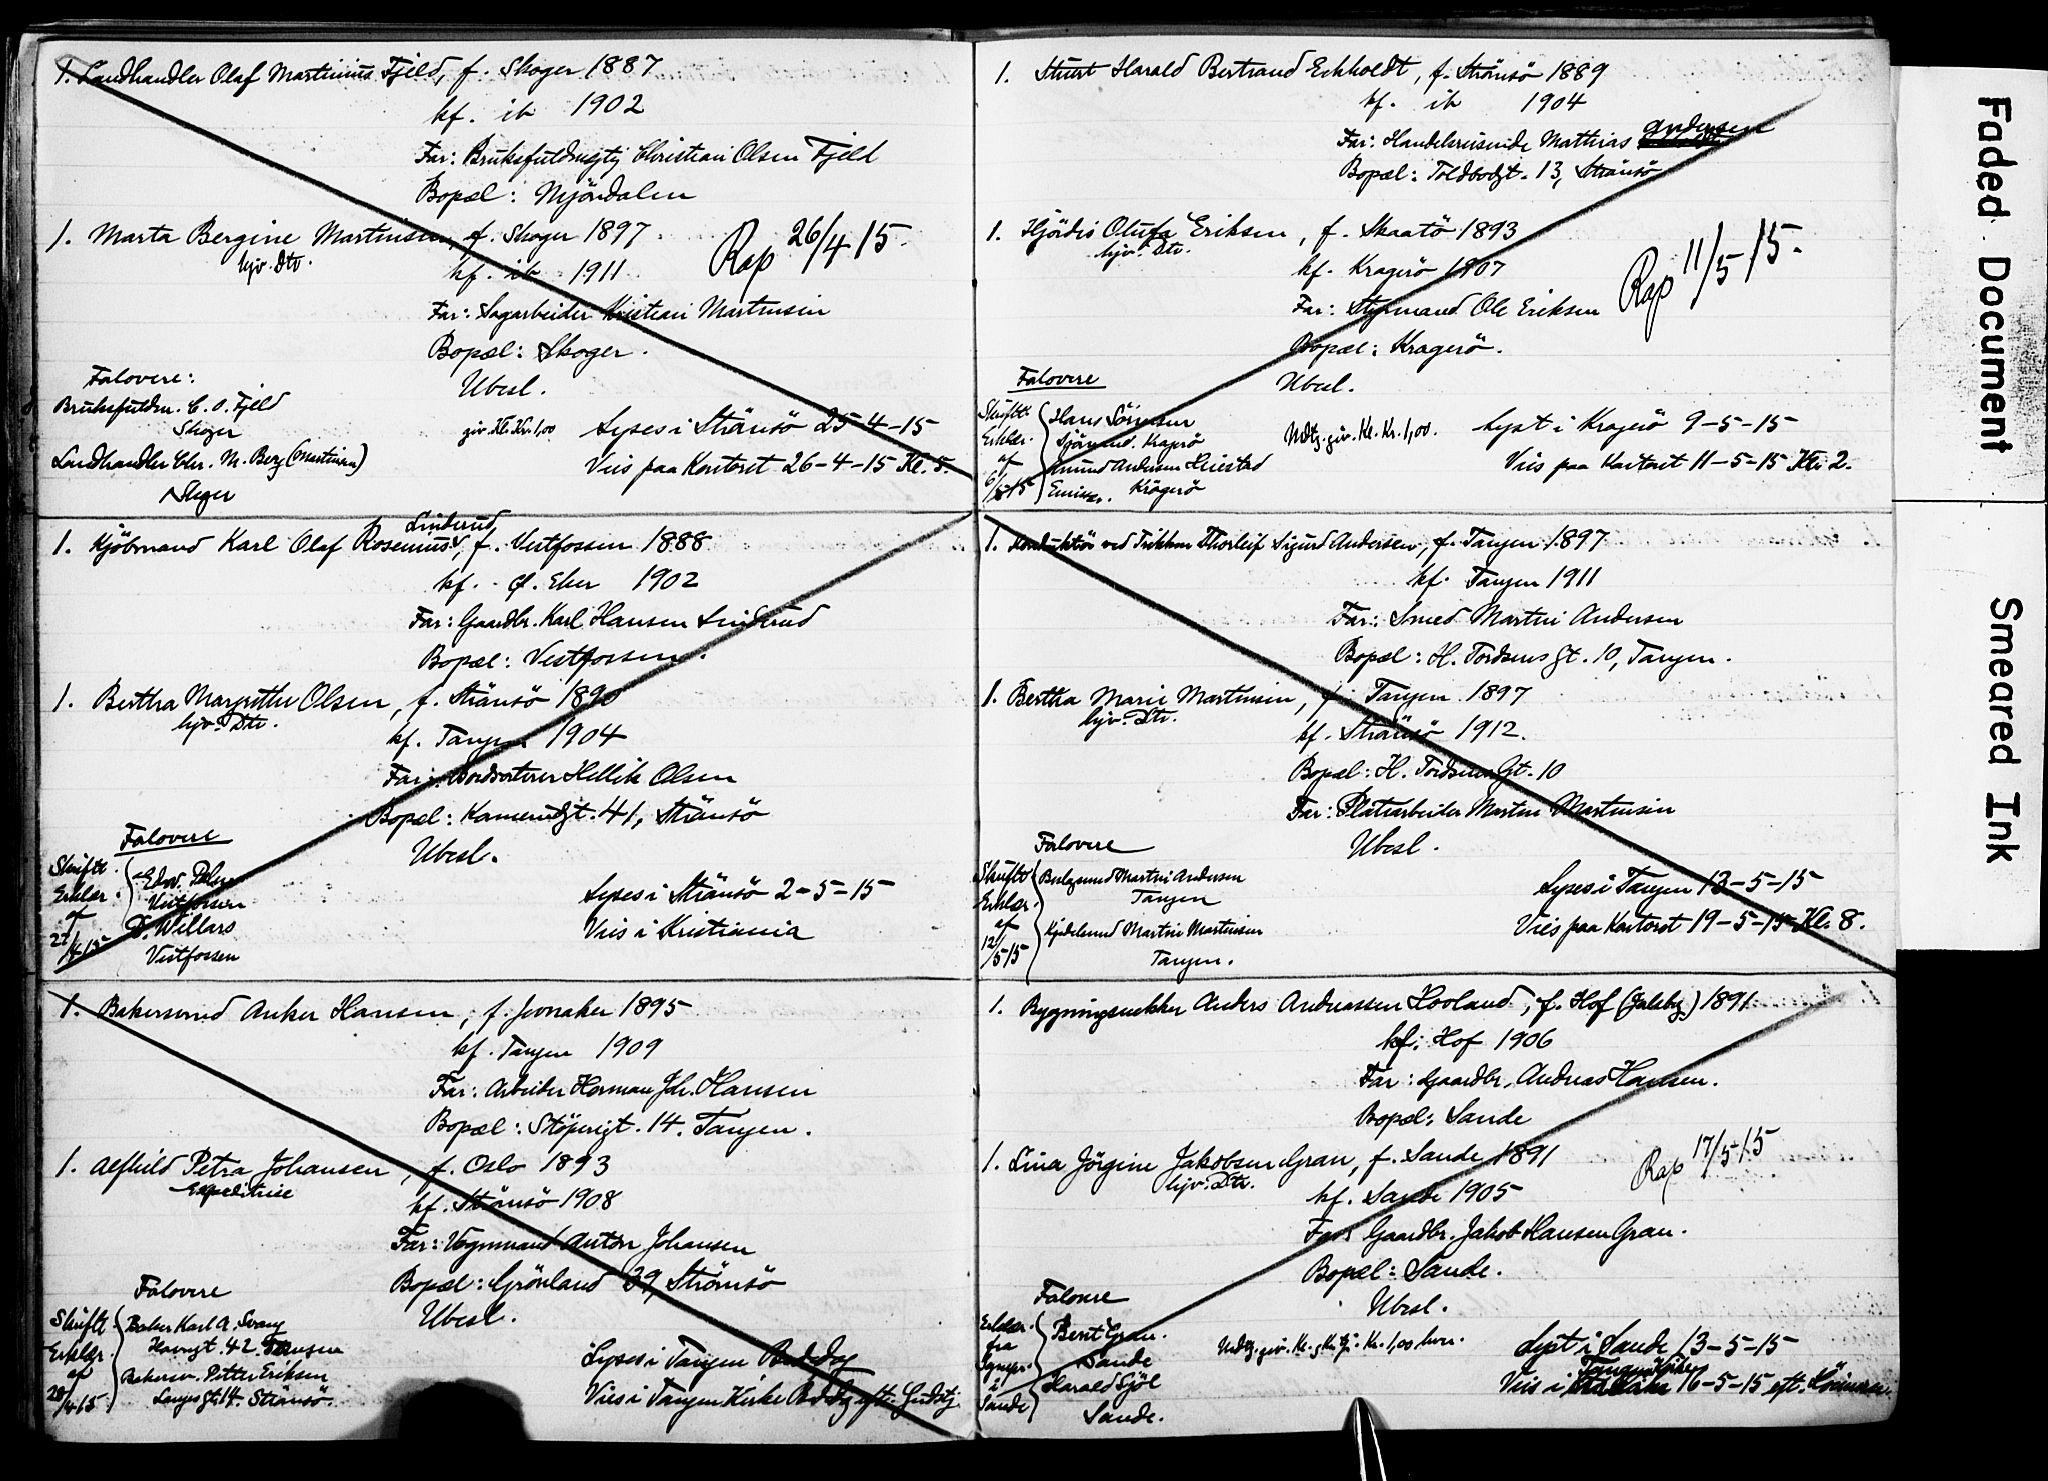 1. Landhandler Olaf Martinius Fjeld, f. Skoger 1887
kf. ib 1902
Far: Bruksfuldmegtig Christian Olsen Fjeld
Bopæl: Mjöndalen
1. Marta Bergine Martinsen, f. Skoger 1897
hjv. Dtr.
kf. ib 1911
Rap 26/4 15.
Far: Sagarbeider Kristian Martinsen
Bopæl: Skoger.
Ubesl.
Falovere:
Bruksfuldm. C. O. Fjeld
Skoger
Landhandler Chr. M. Berg (Martinsen)
Skoger
giv. Kl. Kr. 1,00
Lyses i Strömsö 25-4-15
Vies paa Kontoret 26-4-15 Kl. 5.
1. Kjöbmand Karl Olaf Rosenius Linderud, f. Vestfossen 1888
kf. Ø. Eker 1902
Far: Gaardbr. Karl Hansen Linderud
Bopæl: Vestfossen.
1. Berthea Margrethe Olsen, f. Strömsö 1890
hjv. Dtr.
kf. Tangen 1904
Far: Bordsorterer Hellik Olsen
Bopæl: Konnerudgt. 41, Strömsö
Ubesl.
Falovere
Skriftl. Erklær. af 22/4 15
Edw.
Vestfossen
D. Willars
Vestfossen
Lyses i Strömsö 2-5-15
Vies i Kristiania
1. Bakersvend Anker Hansen, f. Jevnaker 1895
kf. Tangen 1909
Far: Arbeider Herman Joh. Hansen
Bopæl: Stöperigt. 14. Tangen.
1. Alfhild Petra Johansen, f. Oslo 1893
Expeditrise
kf. Strömsö 1908
Far: Vognmand Anton Johansen
Bopæl: Grönland 39, Strömsö
Ubesl.
Falovere
Skriftl. Erklær. af 28/4 15.
Baker Karl A. Svang
Havnegt. 42. Tangen
Bakersv. Petter Eriksen
Langes gt. 14. Strömsö.
Lyses i Tangen
Vies i Tangen Kirke
1. Stuert Harald Bertrand Eckholdt, f. Strömsö 1889
kf. ib 1904
Far: Handelsreisende Mathias Andersen
Bopæl: Toldbodgt. 13, Strömsö
1. Hjördis Olufa Eriksen, f. Skaatö 1893
hjv. Dtr.
kf. Kragerö 1907
Rap 11/5 15.
Far: Styrmand Ole Eriksen
Bopæl: Kragerö.
Ubesl.
Falovere
Skriftl. Erklær. af 6/5 15
Hans Sörensen
Sjömand. Kragerö
Amund Andersen Heiestad
Kragerö
Mdtg. giv. Kl. Kr. 1,00.
Lyst i Kragerö 9-5-15
Vies paa Kontoret 11-5-15 Kl. 2.
1. Konduktör ved Trikken Thorleif Sigurd Andersen, f. Tangen 1897
kf. Tangen 1911
Far: Smed Martin Andersen
Bopæl: H. Tordsens Gt. 10, Tangen.
1. Bertha Marie Martinsen, f. Tangen 1897
hjv. Dtr.
kf. Strömsö 1912.
Bopæl: H. Tordsens Gt. 10
Far: Platearbeider Martin Martinsen
Ubesl.
Falovere
Skriftl. Erklær. af 12/5 15
Beslagsmed Martin Andersen
Tangen
Kjedelsmed Martin Martinsen
Tangen.
Lyses i Tangen 13-5-15
Vies paa Kontoret 19-5-15 Kl. 8.
1. Bygningssnekker Anders Andreassen Hovland, f. Hof (Jarlsbg.) 1891
kf. Hof 1906
Far: Gaardbr. Andreas Hansen.
Bopæl: Sande
1. Lina Jörgine Jakobsen Gran, f. Sande 1891
hjv. Dtr.
kf. Sande 1905
Rap 17/5 15
Far: Gaardbr. Jakob Hansen Gran.
Bopæl: Sande.
Ubesl.
Falovere
Erklær. fra Sognepr. i Sande
Berit Gran.
Sande
Harald Sjöl
Sande.
Mdtg. giv. Kl. Kr. 1,00 hver.
Lyst i Sande 13-5-15
Vies i Tangen Kirke 16-5-15 eft.
Faded Document
Smeared Ink